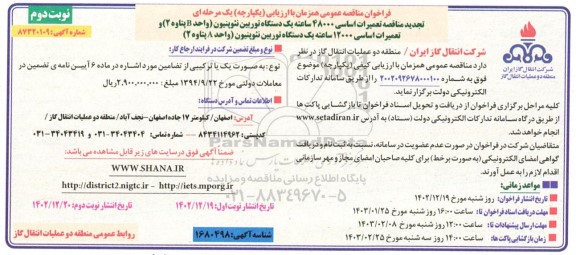 نوبت دوم
شماره آگهی: ۸۷۳۲۰۱۰۹
فراخوان مناقصه عمومی همزمان با ارزیابی (یکپارچه) یک مرحله ای
تجدید مناقصه تعمیرات اساسی ۴۸۰۰۰ ساعته یک دستگاه توربین نئوپینون (واحد II پتاوه ۲) و
تعمیرات اساسی ۱۲۰۰۰ ساعته یک دستگاه توربین نئوپینون (واحد I پتاوه ۲)
شرکت ملی گاز ایران
شرکت انتقال گاز ایران
منطقه دو عملیات انتقال گاز
شرکت انتقال گاز ایران / منطقه دو عملیات انتقال گاز در نظر
دارد مناقصه عمومی همزمان با ارزیابی کیفی (یکپارچه) موضوع
فوق به شماره ۲۰۰۲۰۹۲۶۷۸۰۰۰۱۰۰ را از طریق سامانه تدارکات
الکترونیکی دولت برگزار نماید.
کلیه مراحل برگزاری فراخوان از دریافت و تحویل اسناد فراخوان تا بازگشایی پاکت ها
از طریق درگاه سامانه تدارکات الکترونیکی دولت (ستاد) به آدرس www.setadiran.ir
انجام خواهد شد.
متقاضیان شرکت در فراخوان در صورت عدم عضویت در سامانه، نسبت به ثبت نام و دریافت
گواهی امضای الکترونیکی (به صورت برخط) برای کلیه صاحبان امضای مجاز و مهر سازمانی
اقدام لازم به عمل آورند.
مواعد زمانی:
تاریخ انتشار فراخوان: روز شنبه مورخ ۱۴۰۲/۱۲/۱۹
مهلت دریافت اسناد فراخوان تا: ساعت ۱۶:۰۰ روز شنبه مورخ ۱۴۰۳/۰۱/۲۵
مهلت ارسال پیشنهادات تا: ساعت ۱۲:۰۰ روز شنبه مورخ ۱۴۰۳/۰۲/۰۸
زمان بازگشایی پاکت ها: ساعت ۱۲:۰۰ روز سه شنبه مورخ ۱۴۰۳/۰۲/۲۵
نوع و مبلغ تضمین شرکت در فرایند ارجاع کار:
نوع: به صورت یک یا ترکیبی از تضامین مورد اشاره در ماده ۶ آیین نامه ی تضمین در
معاملات دولتی مورخ ۱۳۹۴/۹/۲۲ مبلغ: ۲,۹۰۰,۰۰۰,۰۰۰ ریال
اطلاعات تماس و آدرس دستگاه:
آدرس: اصفهان / کیلومتر ۱۷ جاده اصفهان - نجف آباد / منطقه دو عملیات انتقال گاز
کدپستی: ۸۴۳۴۱۱۴۹۶۲ شماره تماس: ۳۴۰۴۳۴۰۴-۰۳۱ و ۳۴۰۴۳۴۱۹-۰۳۱
ضمناً آگهی فوق در سایت های زیر قابل مشاهده می باشد:
WWW.SHANA.IR
http://district2.nigtc.ir - http://iets.mporg.ir
تاریخ انتشار نوبت اول: ۱۴۰۲/۱۲/۱۹
تاریخ انتشار نوبت دوم: ۱۴۰۲/۱۲/۲۰
شناسه آگهی: ۱۶۸۰۴۹۸
روابط عمومی منطقه دو عملیات انتقال گاز
پایگاه اطلاع رسانی مناقصه و مزایده
۰۲۱-۸۸۳۴۹۶۷۰-۵